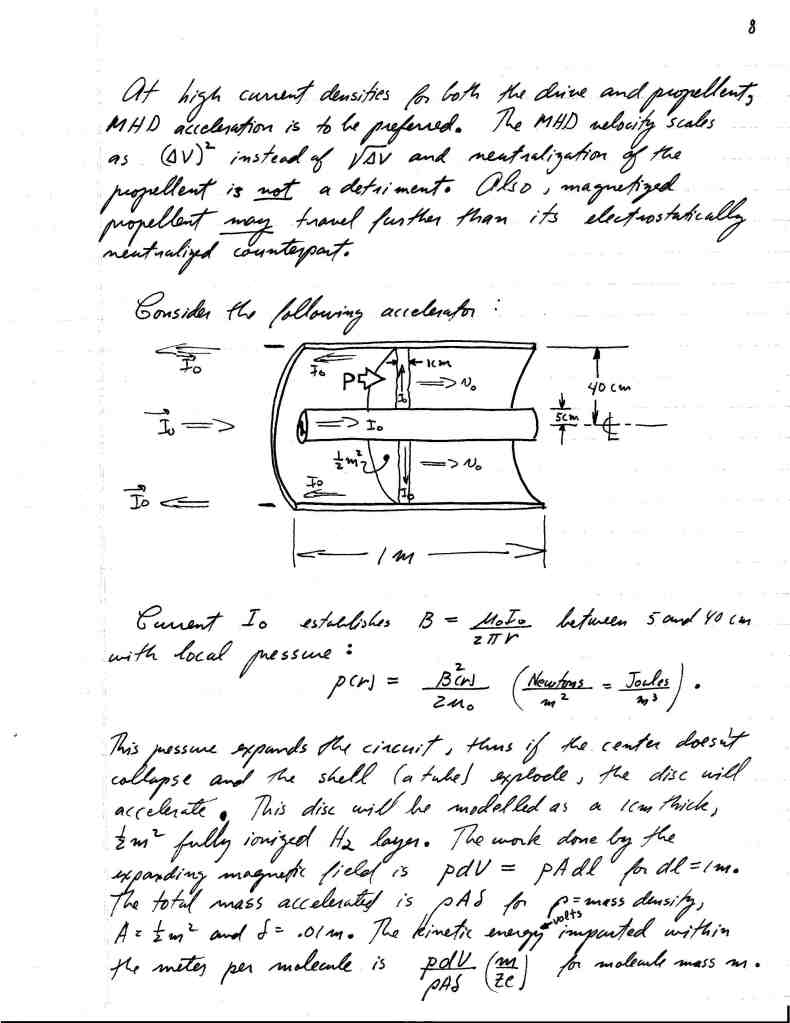 8
At high current densities for both the drive and propellent,
MHD acceleration is to be preferred. The MHD velocity scales
as (ΔV)² instead of √ΔV and neutralization of the
propellent is not a detriment. Also, magnetized
propellent may travel further than its electrostatically
neutralized counterpart.
Consider the following accelerator :
I₀
I₀
1cm
P
I₀
v₀
40 cm
I₀
I₀
5cm
℄
½m²
v₀
I₀
I₀
I₀
1 m
Current I₀ establishes B = μ₀I₀ / 2πr between 5 and 40 cm
with local pressure :
p(r) = B²(r) / 2μ₀ (Newtons / m² = Joules / m³).
This pressure expands the circuit, thus if the center doesn't
collapse and the shell (a tube) explode, the disc will
accelerate. This disc will be modelled as a 1cm thick,
½m² fully ionized H₂ layer. The work done by the
expanding magnetic field is pdV = pAdl for dl = 1m.
The total mass accelerated is ρAδ for ρ = mass density,
A = ½m² and δ = .01m. The kinetic energy volts imparted within
the meter per molecule is pdV / ρAδ (m / Ze) for molecule mass m.